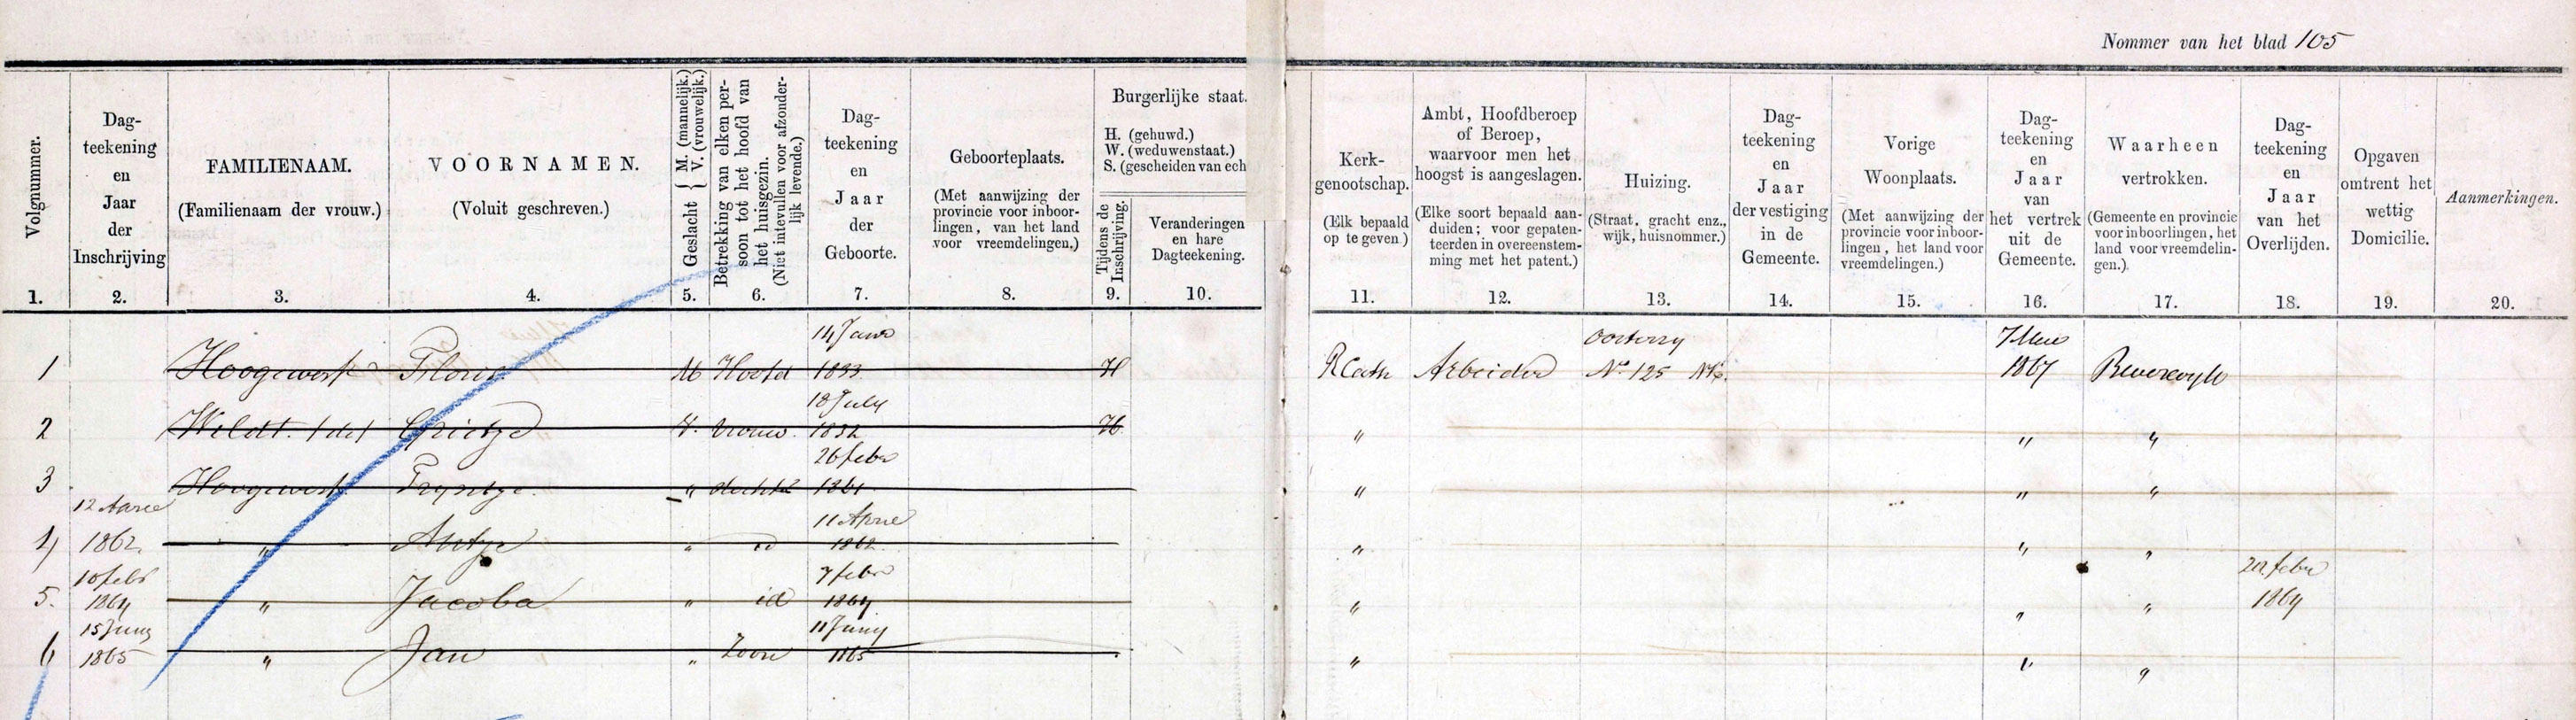 Nommer van het blad 105
Volgnummer.
1.
Dag-
teekening
en
Jaar
der
Inschrijving
2.
FAMILIENAAM.
(Familienaam der vrouw.)
3.
VOORNAMEN.
(Voluit geschreven.)
4.
Geslacht { M. (mannelijk.) V. (vrouwelijk.)
5.
Betrekking van elken per-
soon tot het hoofd van
het huisgezin.
(Niet intevullen voor afzonder-
lijk levende.)
6.
Dag-
teekening
en
Jaar
der
Geboorte.
7.
Geboorteplaats.
(Met aanwijzing der
provincie voor inboor-
lingen, van het land
voor vreemdelingen.)
8.
Burgerlijke staat.
H. (gehuwd.)
W. (weduwenstaat.)
S. (gescheiden van ech
Tijdens de
Inschrijving.
9.
Veranderingen
en hare
Dagteekening.
10.
Kerk-
genootschap.
(Elk bepaald
op te geven.)
11.
Ambt, Hoofdberoep
of Beroep,
waarvoor men het
hoogst is aangeslagen.
(Elke soort bepaald aan-
duiden; voor gepaten-
teerden in overeenstem-
ming met het patent.)
12.
Huizing.
(Straat, gracht enz.,
wijk, huisnommer.)
13.
Dag-
teekening
en
Jaar
der vestiging
in de
Gemeente.
14.
Vorige
Woonplaats.
(Met aanwijzing der
provincie voor inboor-
lingen, het land voor
vreemdelingen.)
15.
Dag-
teekening
en
Jaar
van
het vertrek
uit de
Gemeente.
16.
Waarheen
vertrokken.
(Gemeente en provincie
voor inboorlingen, het
land voor vreemdelin-
gen.)
17.
Dag-
teekening
en
Jaar
van het
Overlijden.
18.
Opgaven
omtrent het
wettig
Domicilie.
19.
Aanmerkingen.
20.
14 Janu
1 Hoogewerf Floris M Hoofd 1833 H RCath Arbeider No 125 1867 Beverwyk
18 July
2 Weldt (de) Grietje V. vrouw. 1832 H " " "
26 febr
3 Hoogewerf Tryntje " dochter 1861 " " "
11 April
4 1862 " Antje " id 1862 " " "
10 febr 7 febr
5. 1864 " Jacoba " id 1864 " " " 1864
15 Juny 11 Juny
6 1865 " Jan " Zoon 1865 " " "